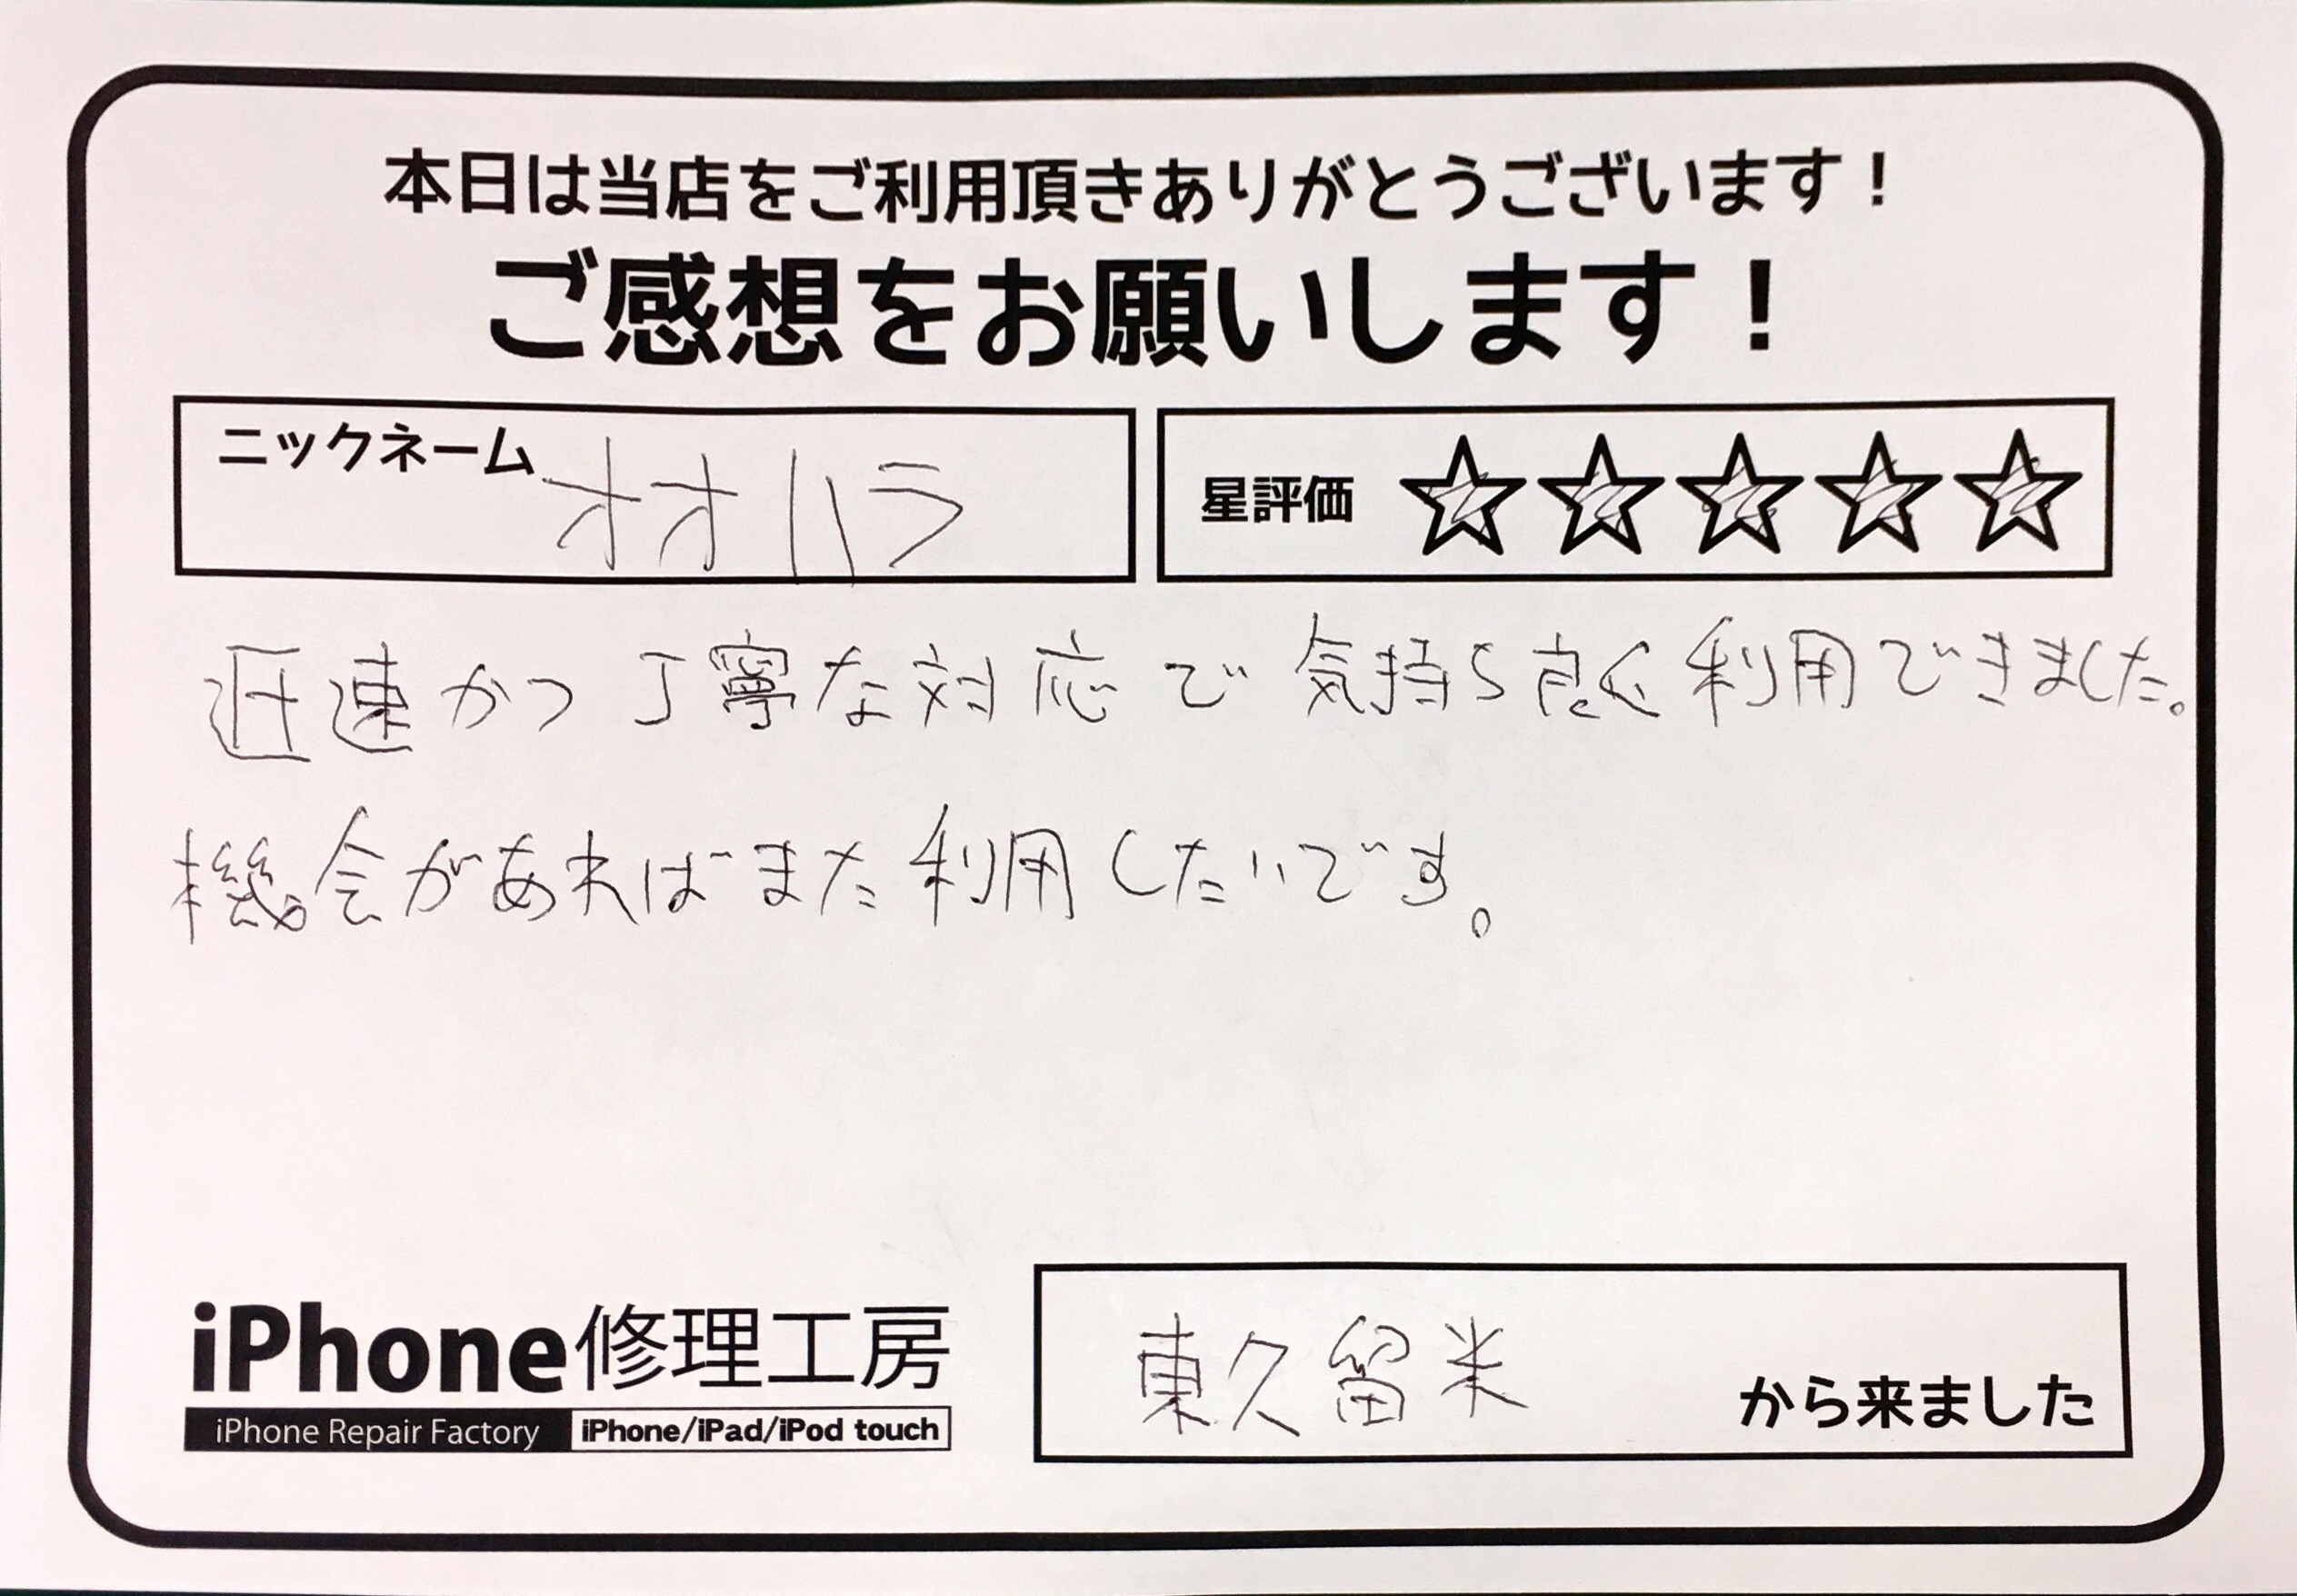 本日は当店をご利用頂きありがとうございます！
ご感想をお願いします！
ニックネーム オオハラ
星評価 ☆☆☆☆☆
迅速かつ丁寧な対応で気持ち良く利用できました。
機会があればまた利用したいです。
iPhone修理工房
iPhone Repair Factory iPhone/iPad/iPod touch
東久留米 から来ました